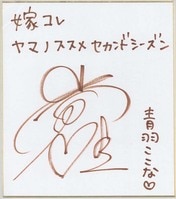 嫁コレ
ヤマノススメ セカンドシーズン
青羽ここな♡